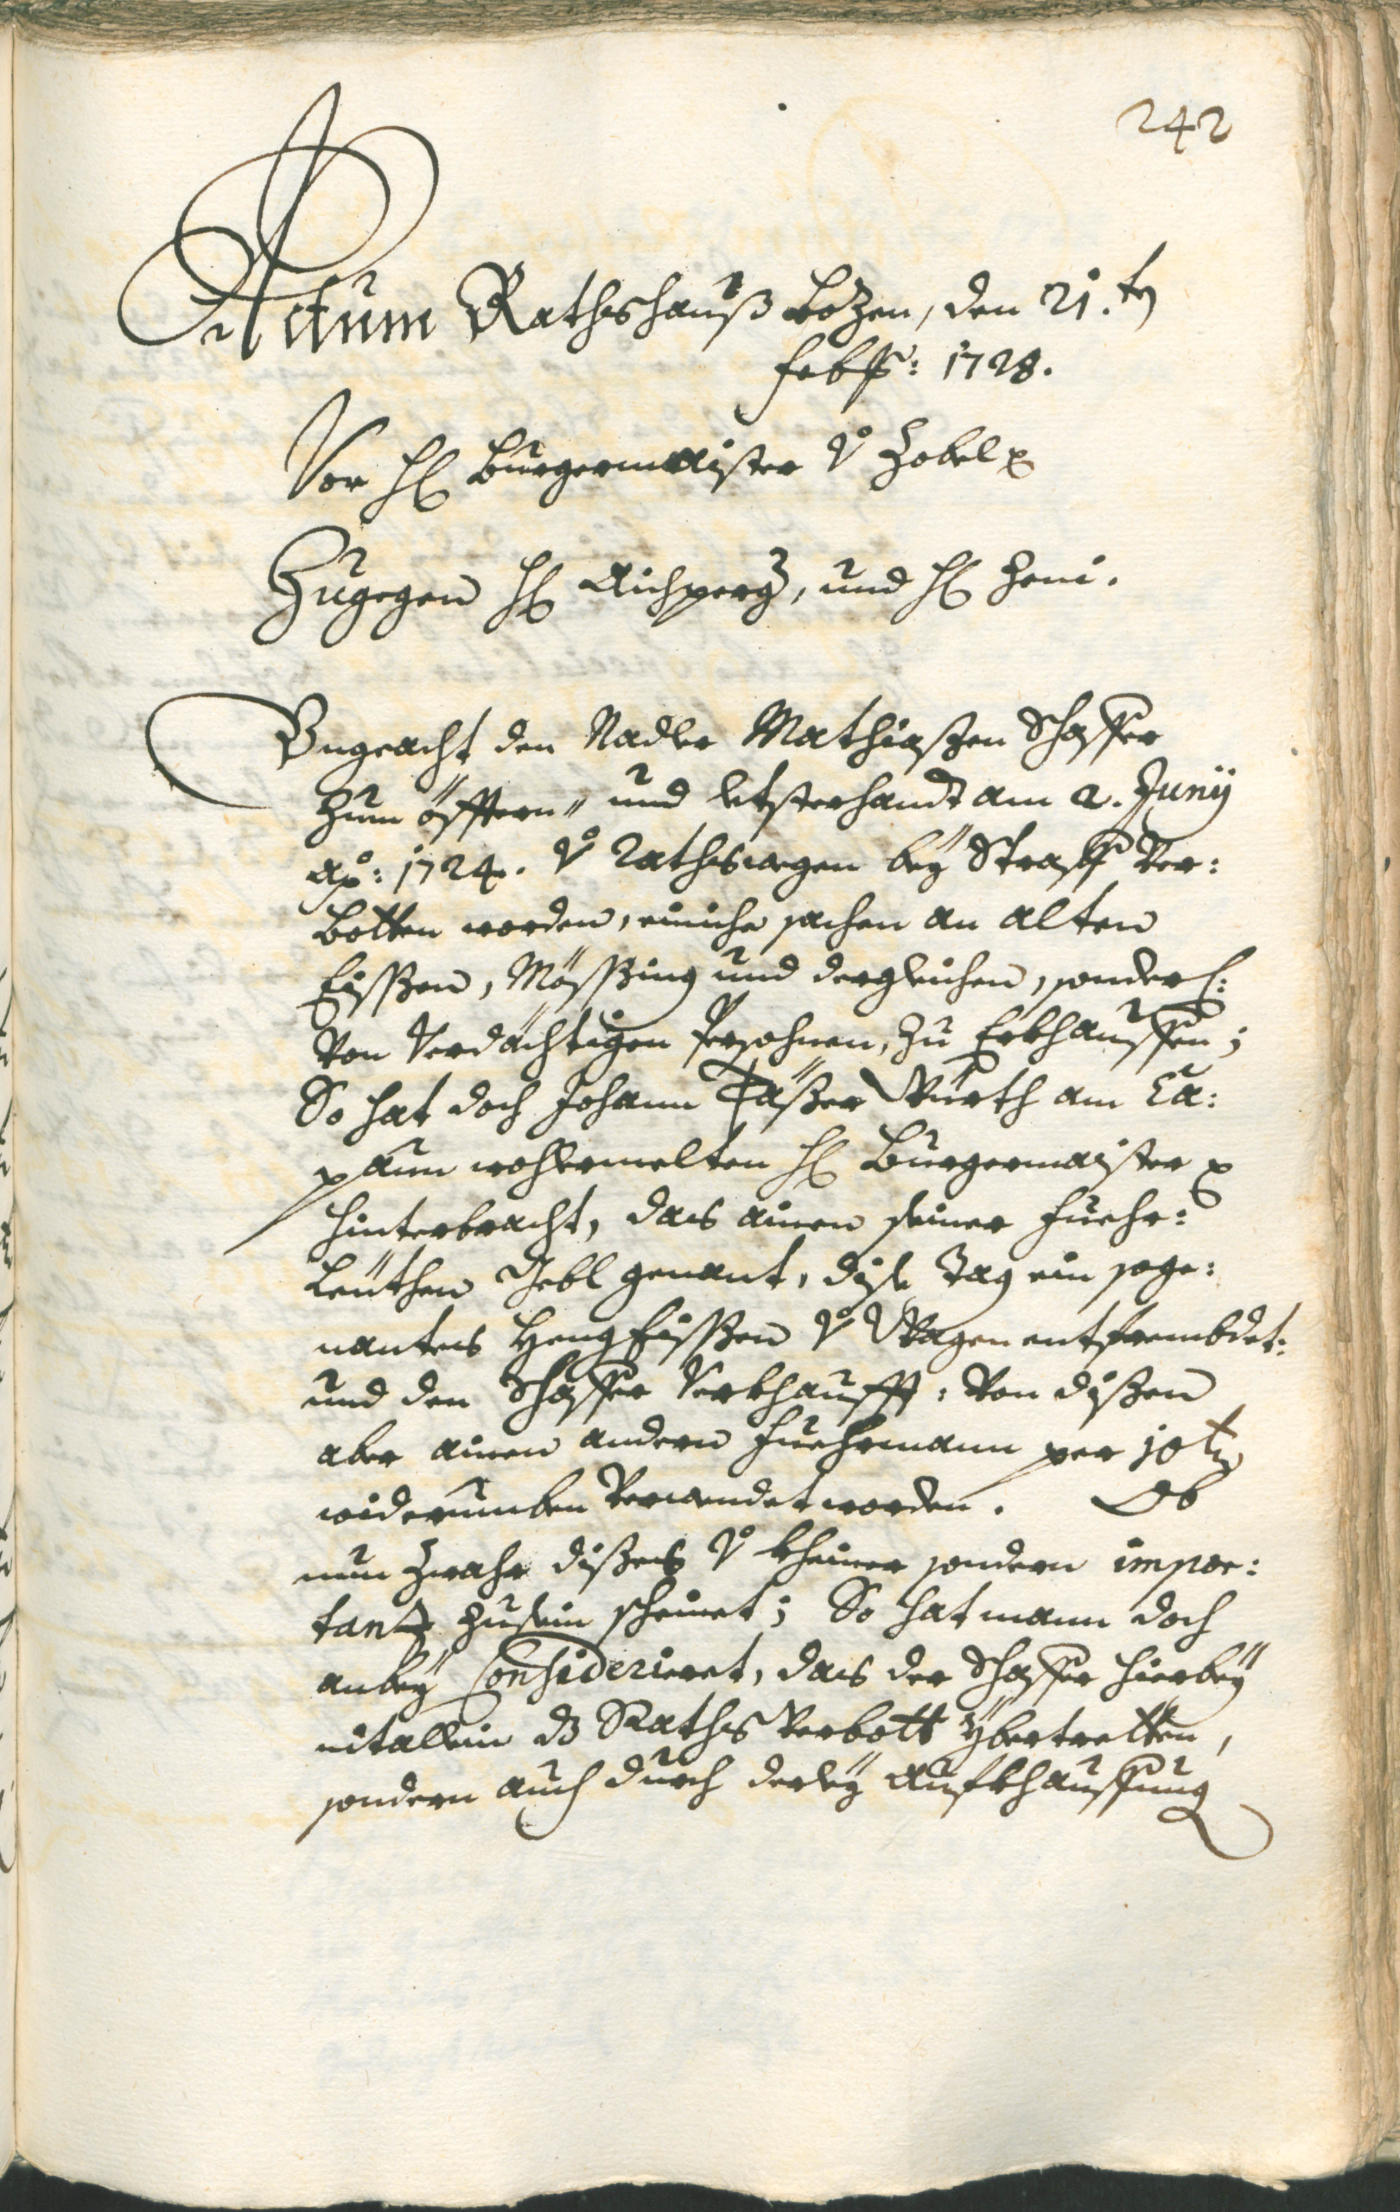 242
Actum Rathshauß Bozen, den 21.ten
Febr: 1728.
Vor H Burgermaister v Zobel
Zugegen H Aichperg, und H Zeni.
Ungeacht den Nadler Mathiaßen Schaffer
zum öfftern" und letsterhandt am 2. Juny
Ao: 1724. v Rathswegen bey Straff Ver:
botten worden, einiche sachen an alten
Eißßen, Mößßing und dergleichen, sonderl:
von verdächtigen Persohnen, zu Erkhauffen;
So hat doch Johann Täßer Würth am Ca:
paun wohlermelten H Burgermaister
hinterbracht, das ainen seiner Fuehr:
leüthen Jebl genant, dise Tag ein soge:
nantes HengEißßen v Wagen entfrembdet:
und den Schaffer verkhaufft: von dißen
aber ainen andern Fuehrmann per 10 
widerumben verwendet worden. Ob
nun zwahr dißes v kheiner sondern impor:
tanz zusein scheinet; So hat mann doch
anbey Considerieret, das der Schaffer hierbey
nit allein ds Raths Verbott ybertretten,
sondern auch durch derley Aufkhauffung